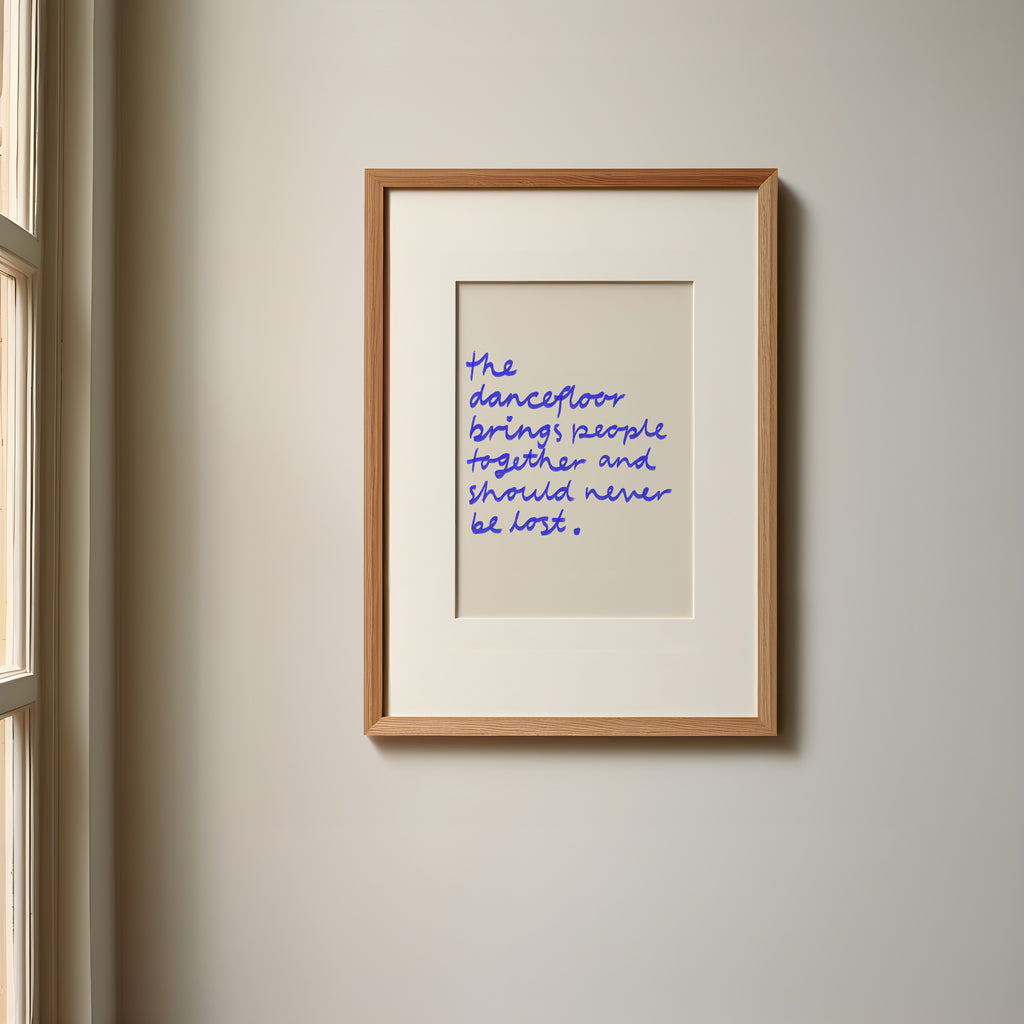 the
dancefloor
brings people
together and
should never
be lost.